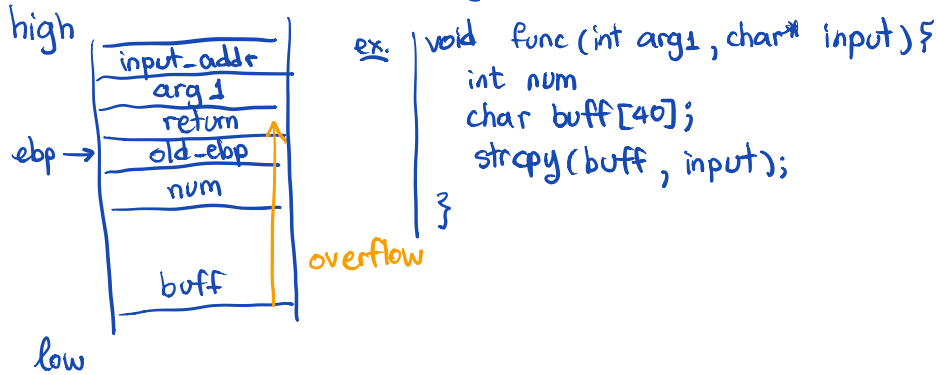 high
input_addr
arg1
return
ebp → old_ebp
num
buff
low
overflow
ex. void func(int arg1, char* input){
int num
char buff[40];
strcpy(buff, input);
}